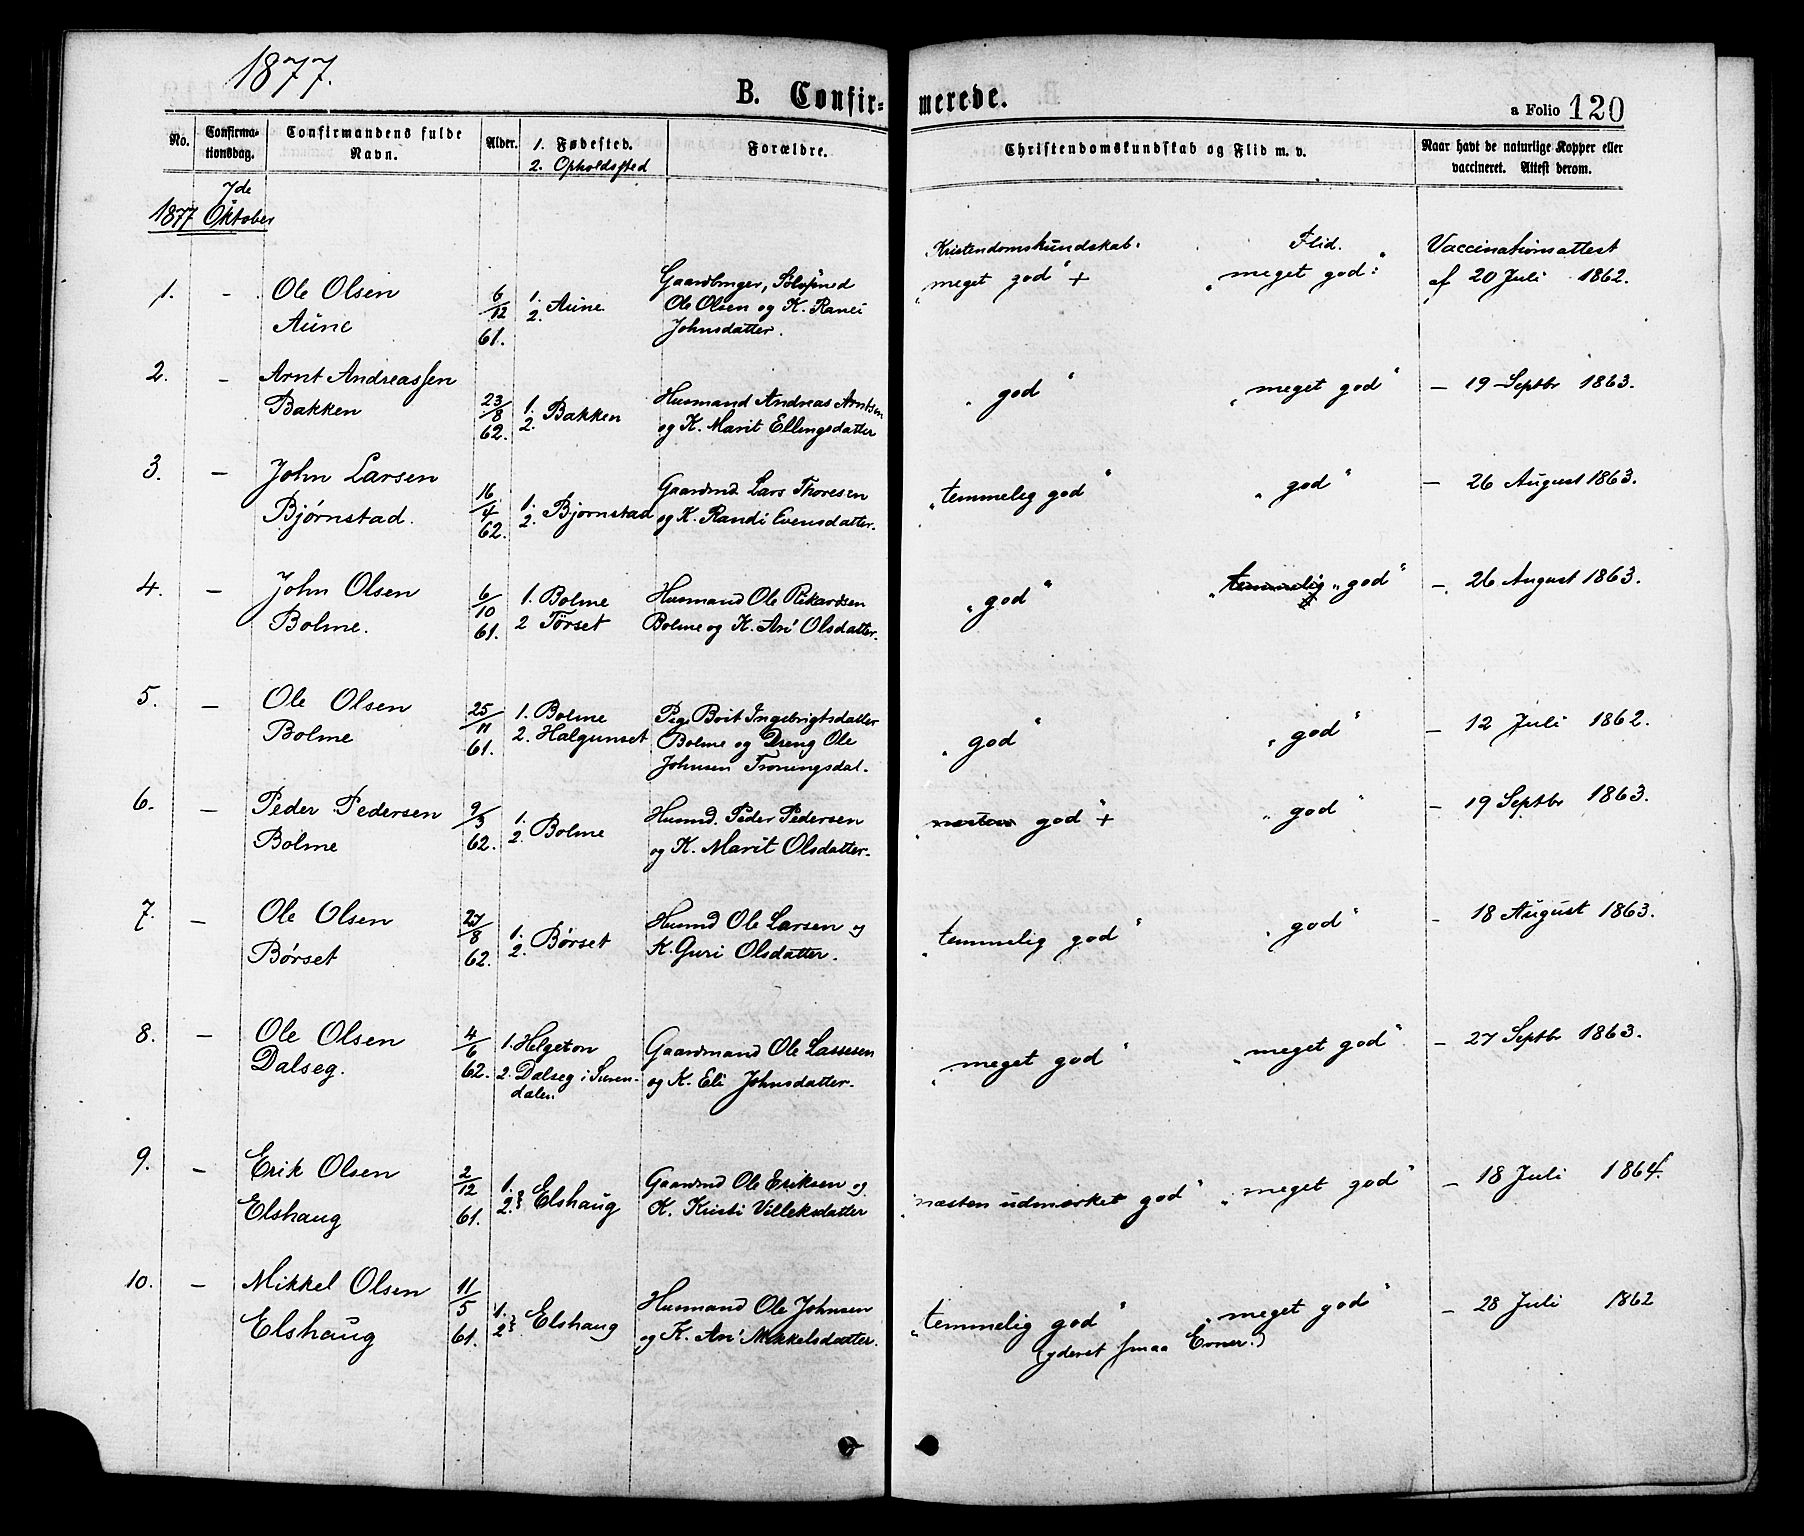 1877.
B. Confirmerede.
a Folio 120
No.
Confirma-
tionsdag.
Confirmandens fulde
Navn.
Alder.
1. Fødested.
2. Opholdssted
Forældre.
Christendomskundskab og Flid m. v.
Naar havt de naturlige Kopper eller
vaccineret. Attest derom.
7de
1877 Oktober
Kristendomskundskab.
Flid.
Vaccinationsattest
1. - Ole Olsen
Aune
6/12 61.
1. 2. Aune.
Gaardbruger,
Ole Olsen og K. Ranei
Johnsdatter.
"meget god" +
"meget god"
af 20 Juli 1862.
2. - Arnt Andreassen
Bakken
23/8 62.
1. 2. Bakken
Husmand Andreas Arntsen
og K. Marit Ellingsdatter
"god"
"meget god"
- 19 Septbr 1863.
3. - John Larsen
Bjørnstad.
16/4 62.
1. 2. Bjørnstad
Gaardmd. Lars Thoresen
og K. Randi Evensdatter.
"temmelig god"
"god"
- 26 August 1863.
4. - John Olsen
Bolme.
6/10 61.
1. Bolme
2 Tørset
Husmand Ole Rikardsen
Bolme og K. Ari Olsdatter.
"god"
"temmelig "god"
- 26 August 1863.
5. - Ole Olsen
Bolme
25/11 61.
1. Bolme
2. Halgunset
Pige Brit Ingebrigtsdatter
Bolme og Dreng Ole
Johnsen Troningsdal.
"god"
"god"
- 12 Juli 1862.
6. - Peder Pedersen
Bolme
9/3 62.
1. 2. Bolme
Husmd. Peder Pedersen
og K. Marit Olsdatter.
"næsten god" +
"god"
- 19 Septbr 1863.
7. - Ole Olsen
Børset
27/8 62.
1. 2. Børset
Husmd Ole Larsen og
K. Guri Olsdatter.
"temmelig god"
"god"
- 18 August 1863.
8. - Ole Olsen
Dalseg.
4/6 62.
1. Helgeton
2. Dalseg i Suren-
dalen
Gaardmand Ole Lassesen
og K. Eli Johnsdatter.
"meget god"
"meget god"
- 27 Septbr 1863.
9. - Erik Olsen
Elshaug
2/12 61.
1. 2. Elshaug
Gaardmd Ole Eriksen og
K. Kristi Villeksdatter
"næsten udmærket god"
"meget god"
- 18 Juli 1864.
10. - Mikkel Olsen
Elshaug
11/5 61.
1. 2. Elshaug
Husmand Ole Johnsen
og K. Ari Mikkelsdatter.
"temmelig god"
(yderst smaa Evner.)
"meget god"
- 28 Juli 1862